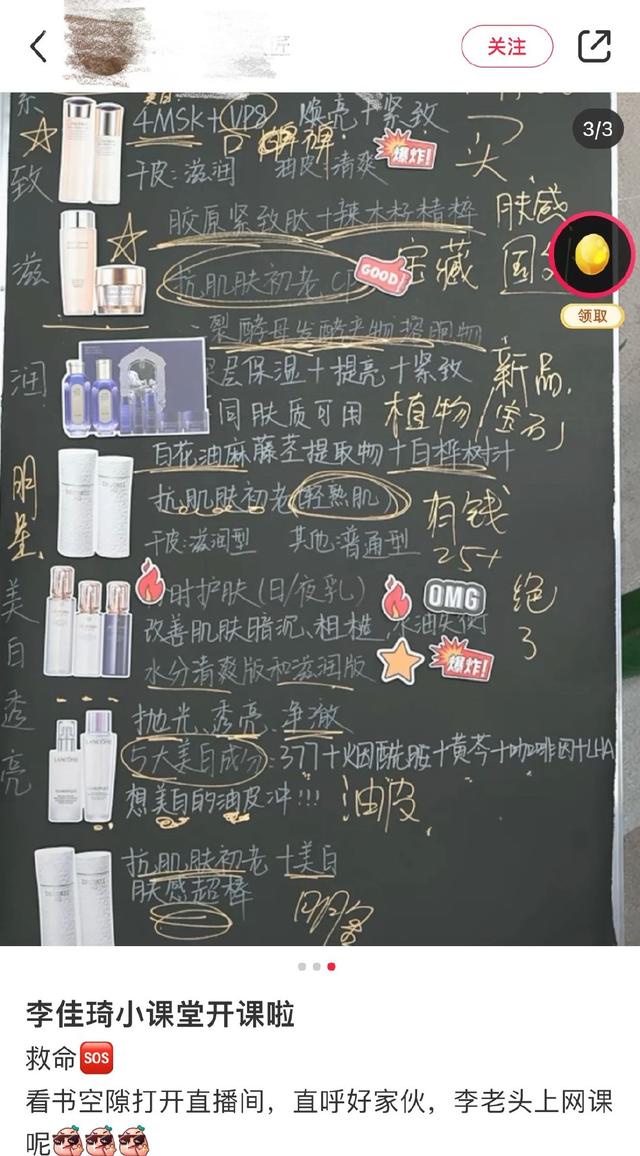 关注
3/3
美白
4MSK+VP8 焕亮+紧致
干皮:滋润 油皮:清爽
爆炸!
买
致
胶原紧致肽+辣木籽精粹
肤感
滋
抗肌肤初老
GOOD!
宝藏
领取
二裂酵母发酵产物溶胞物
润
层保湿+提亮+紧致
新品
同肤质可用
植物
白花油麻藤茎提取物+白桦树汁
明星
抗肌肤初老(轻熟肌)
有钱
25+
干皮:滋润型 其他:普通型
美白透亮
时护肤(日/夜乳)
OMG
绝了
改善肌肤暗沉、粗糙、水油失衡
水分清爽版和滋润版
爆炸!
抛光、透亮、净澈
LANCÔME
5大美白成分:377+烟酰胺+黄芩+咖啡因+LHA
想美白的油皮冲!!!
油皮
抗肌肤初老+美白
肤感超棒
李佳琦小课堂开课啦
救命SOS
看书空隙打开直播间,直呼好家伙,李老头上网课
呢